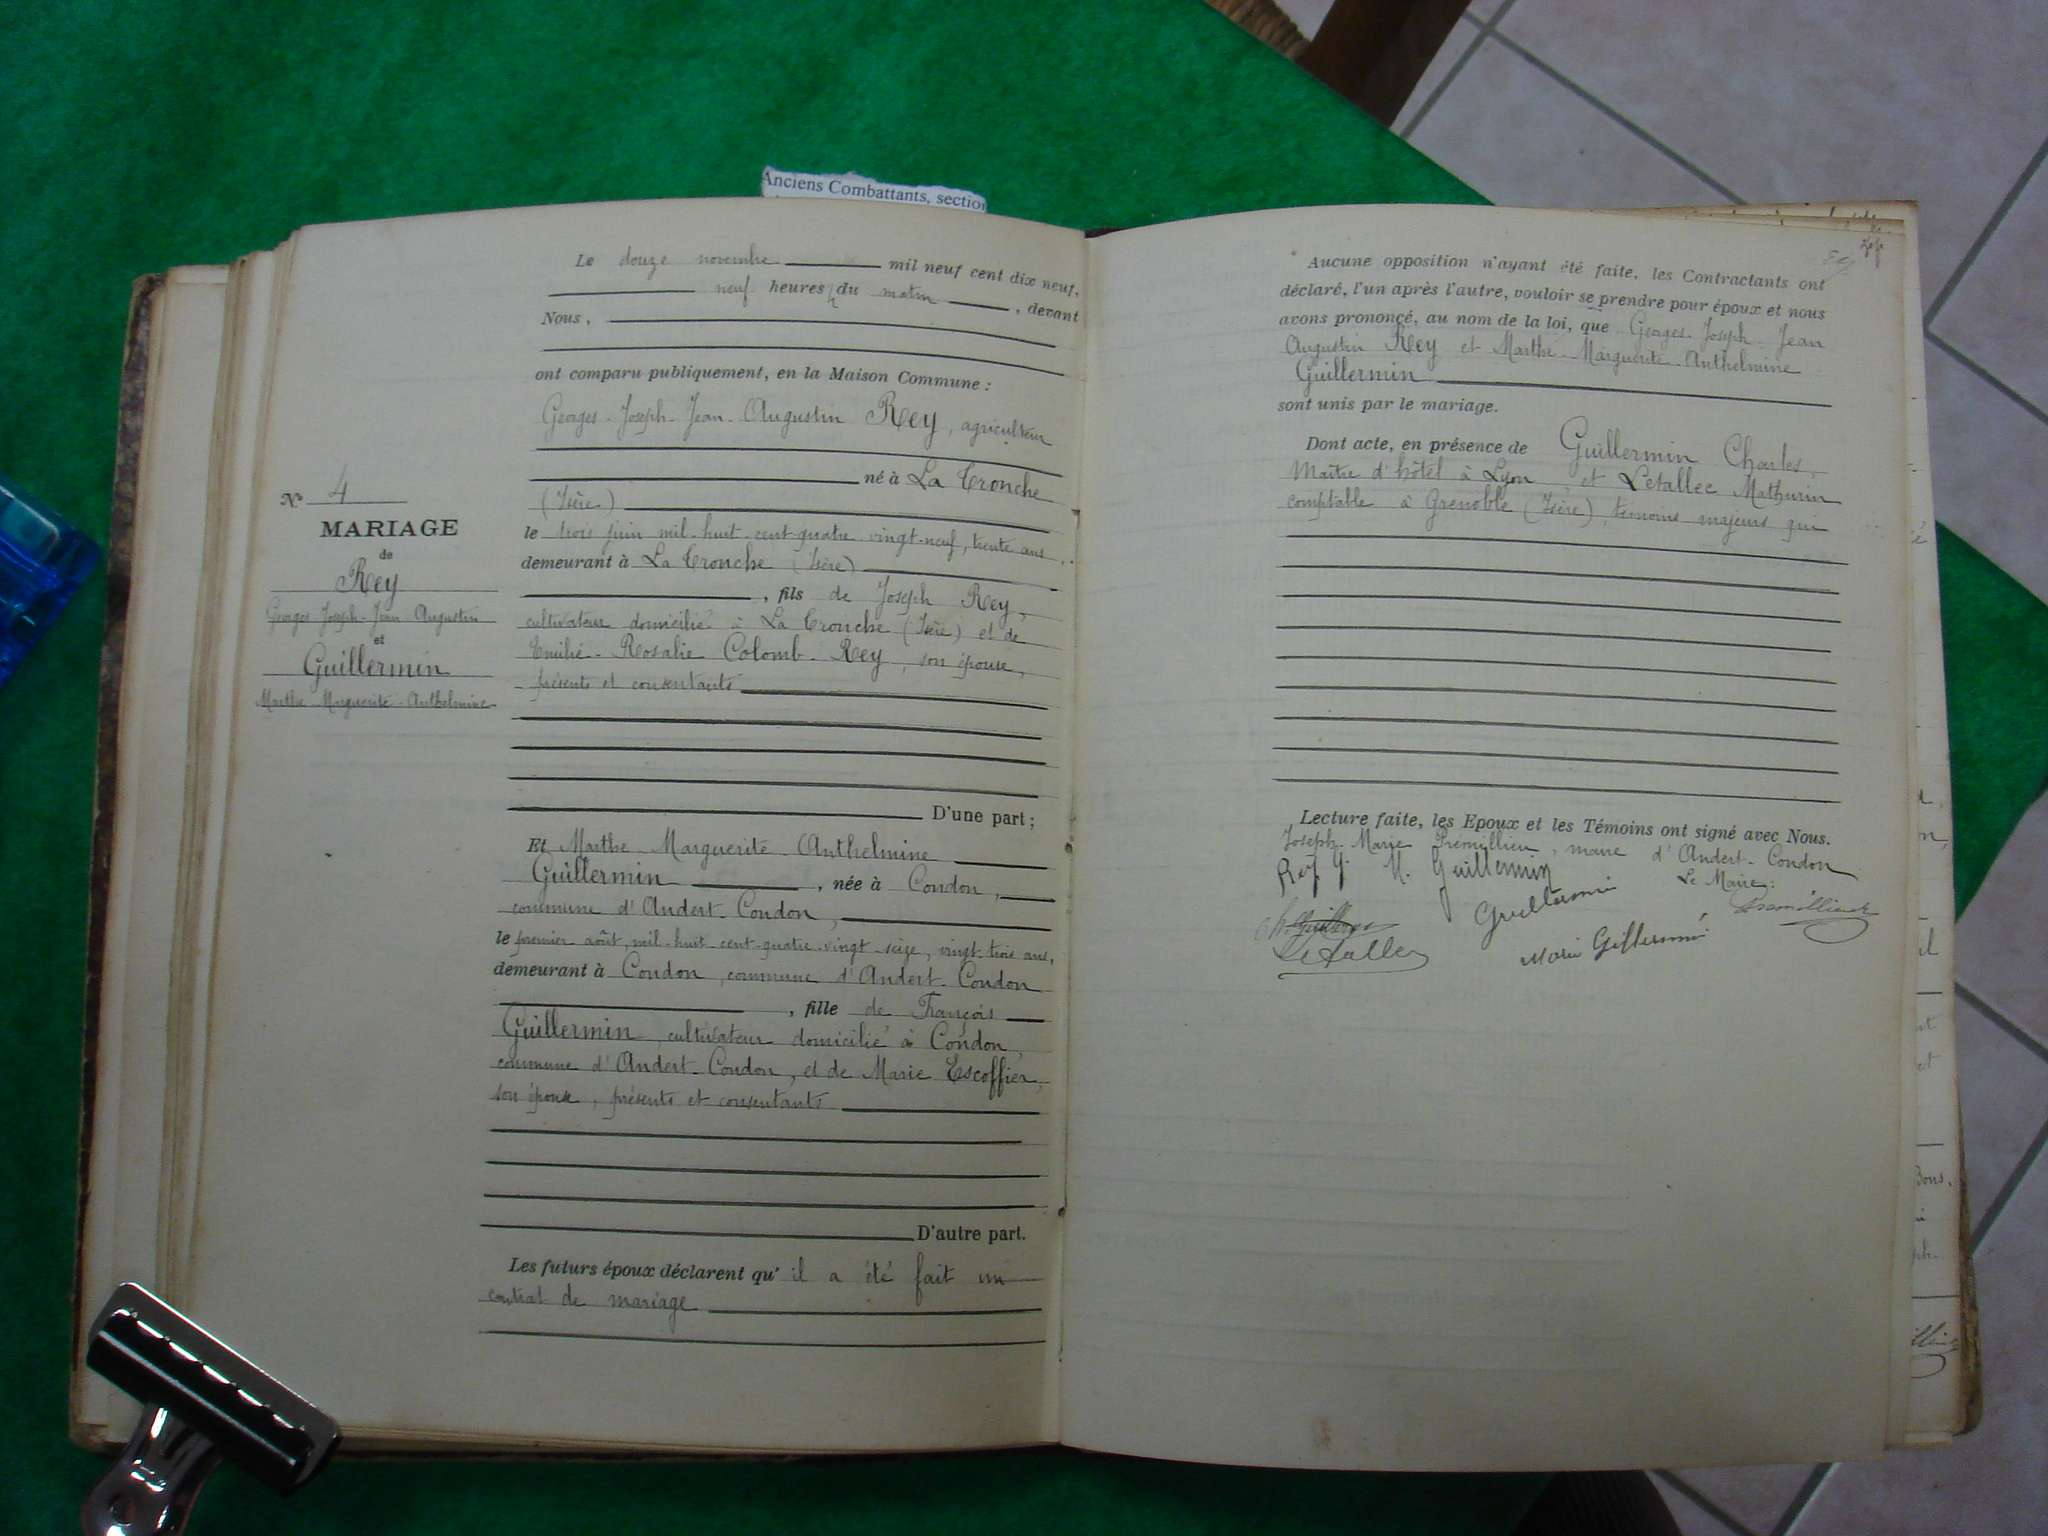 Anciens Combattants, section
Le douze novembre mil neuf cent dix neuf,
neuf heures du matin, devant
Nous,
ont comparu publiquement, en la Maison Commune :
Georges-Joseph-Jean-Augustin Rey, agriculteur
né à La Tronche
(Isère)
le trois juin mil-huit-cent-quatre-vingt-neuf, trente ans,
demeurant à La Tronche (Isère)
, fils de Joseph Rey,
cultivateur domicilié à La Tronche (Isère) et de
Emilie-Rosalie Colomb-Rey, son épouse,
présents et consentants
D'une part ;
Nº 4
MARIAGE
de
Rey
Georges-Joseph-Jean Augustin
et
Guillermin
Marthe Marguerite-Anthelmine
Et Marthe-Marguerite-Anthelmine
Guillermin, née à Condon,
commune d'Andert-Condon,
le premier août, mil-huit-cent-quatre-vingt-seize, vingt-trois ans,
demeurant à Condon, commune d'Andert-Condon
, fille de François
Guillermin, cultivateur domicilié à Condon,
commune d'Andert-Condon, et de Marie Escoffier,
son épouse, présents et consentants
D'autre part.
Les futurs époux déclarent qu'il a été fait un
contrat de mariage
Aucune opposition n'ayant été faite, les Contractants ont
déclaré, l'un après l'autre, vouloir se prendre pour époux et nous
avons prononcé, au nom de la loi, que Georges-Joseph-Jean
Augustin Rey et Marthe-Marguerite-Anthelmine
Guillermin
sont unis par le mariage.
Dont acte, en présence de Guillermin Charles,
Maître d'hôtel à Lyon et Letallec Mathurin
comptable à Grenoble (Isère), témoins majeurs qui
Lecture faite, les Epoux et les Témoins ont signé avec Nous.
Joseph-Marie Prémillieu, maire d'Andert-Condon
Rey G. M. Guillermin Le Maire :
Guillermin
Ch. Guillermin
Le Tallec